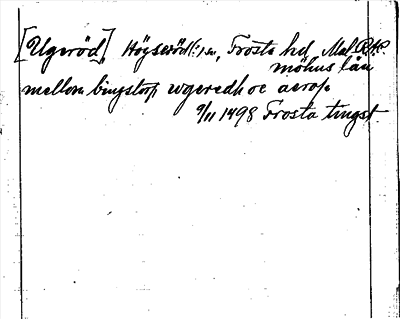 [Ugeröd], Höyseröd(:) sn, Frosta hd, Mal
möhus län
mellom bingstorp wgeredh oc aerop.
9/11 1498 Frosta tingst.